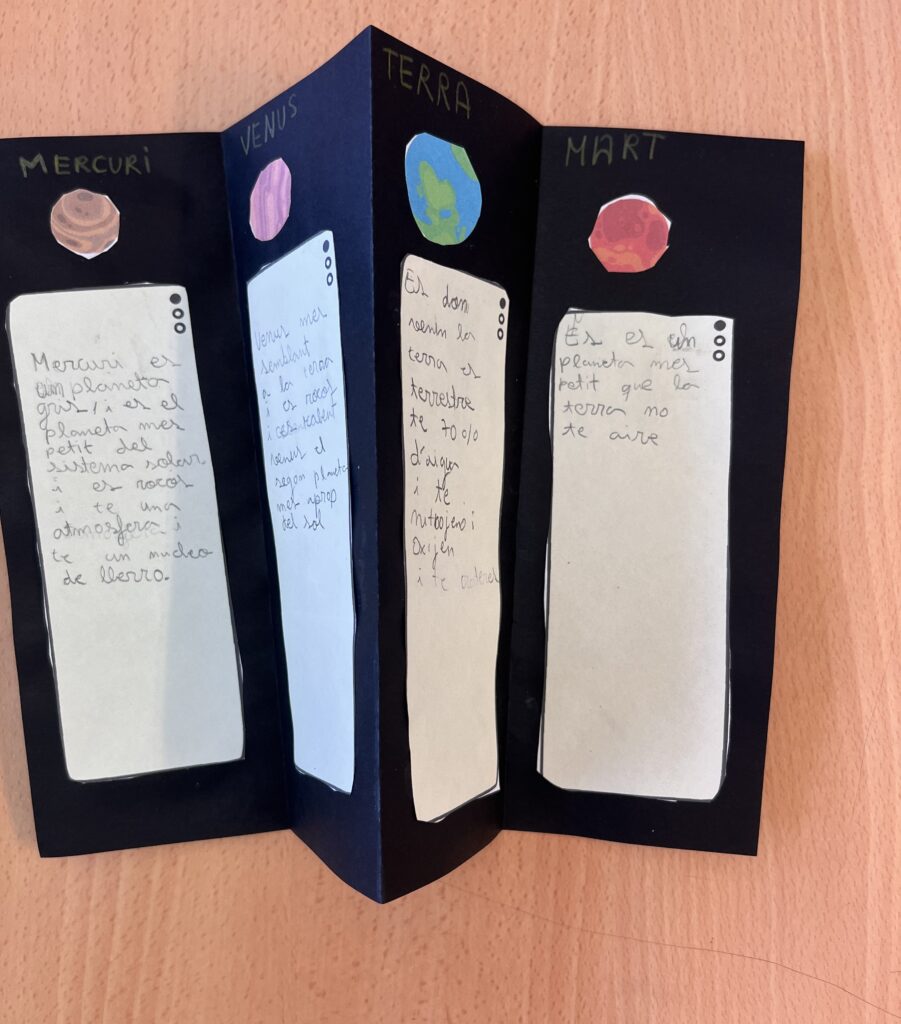 MERCURi
Mercuri es
un planeta
gris, i es el
planeta mes
petit del
sistema solar
i es rocos
i te una
atmosfera i
te un nucleo
de llerro.
VENUS
Venus mes
semblant
a la terra
i es rocos
i
venus el
segon planeta
mes aprop
del sol
TERRA
Es don
la
terra es
terrestre
te 70%
d'aigua
i te
nitrojen i
Oxijen
i te
MART
Es es un
planeta mes
petit que la
terra no
te aire